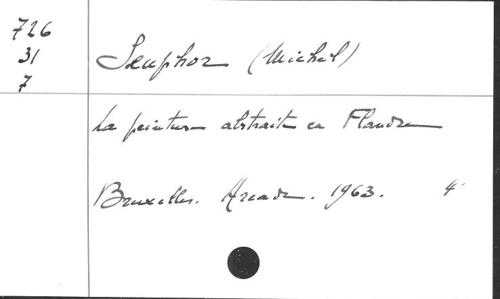 726
31
7
Seuphor (Michel)
La peinture abstraite en Flandre
Bruxelles. Arcade. 1963. 4°